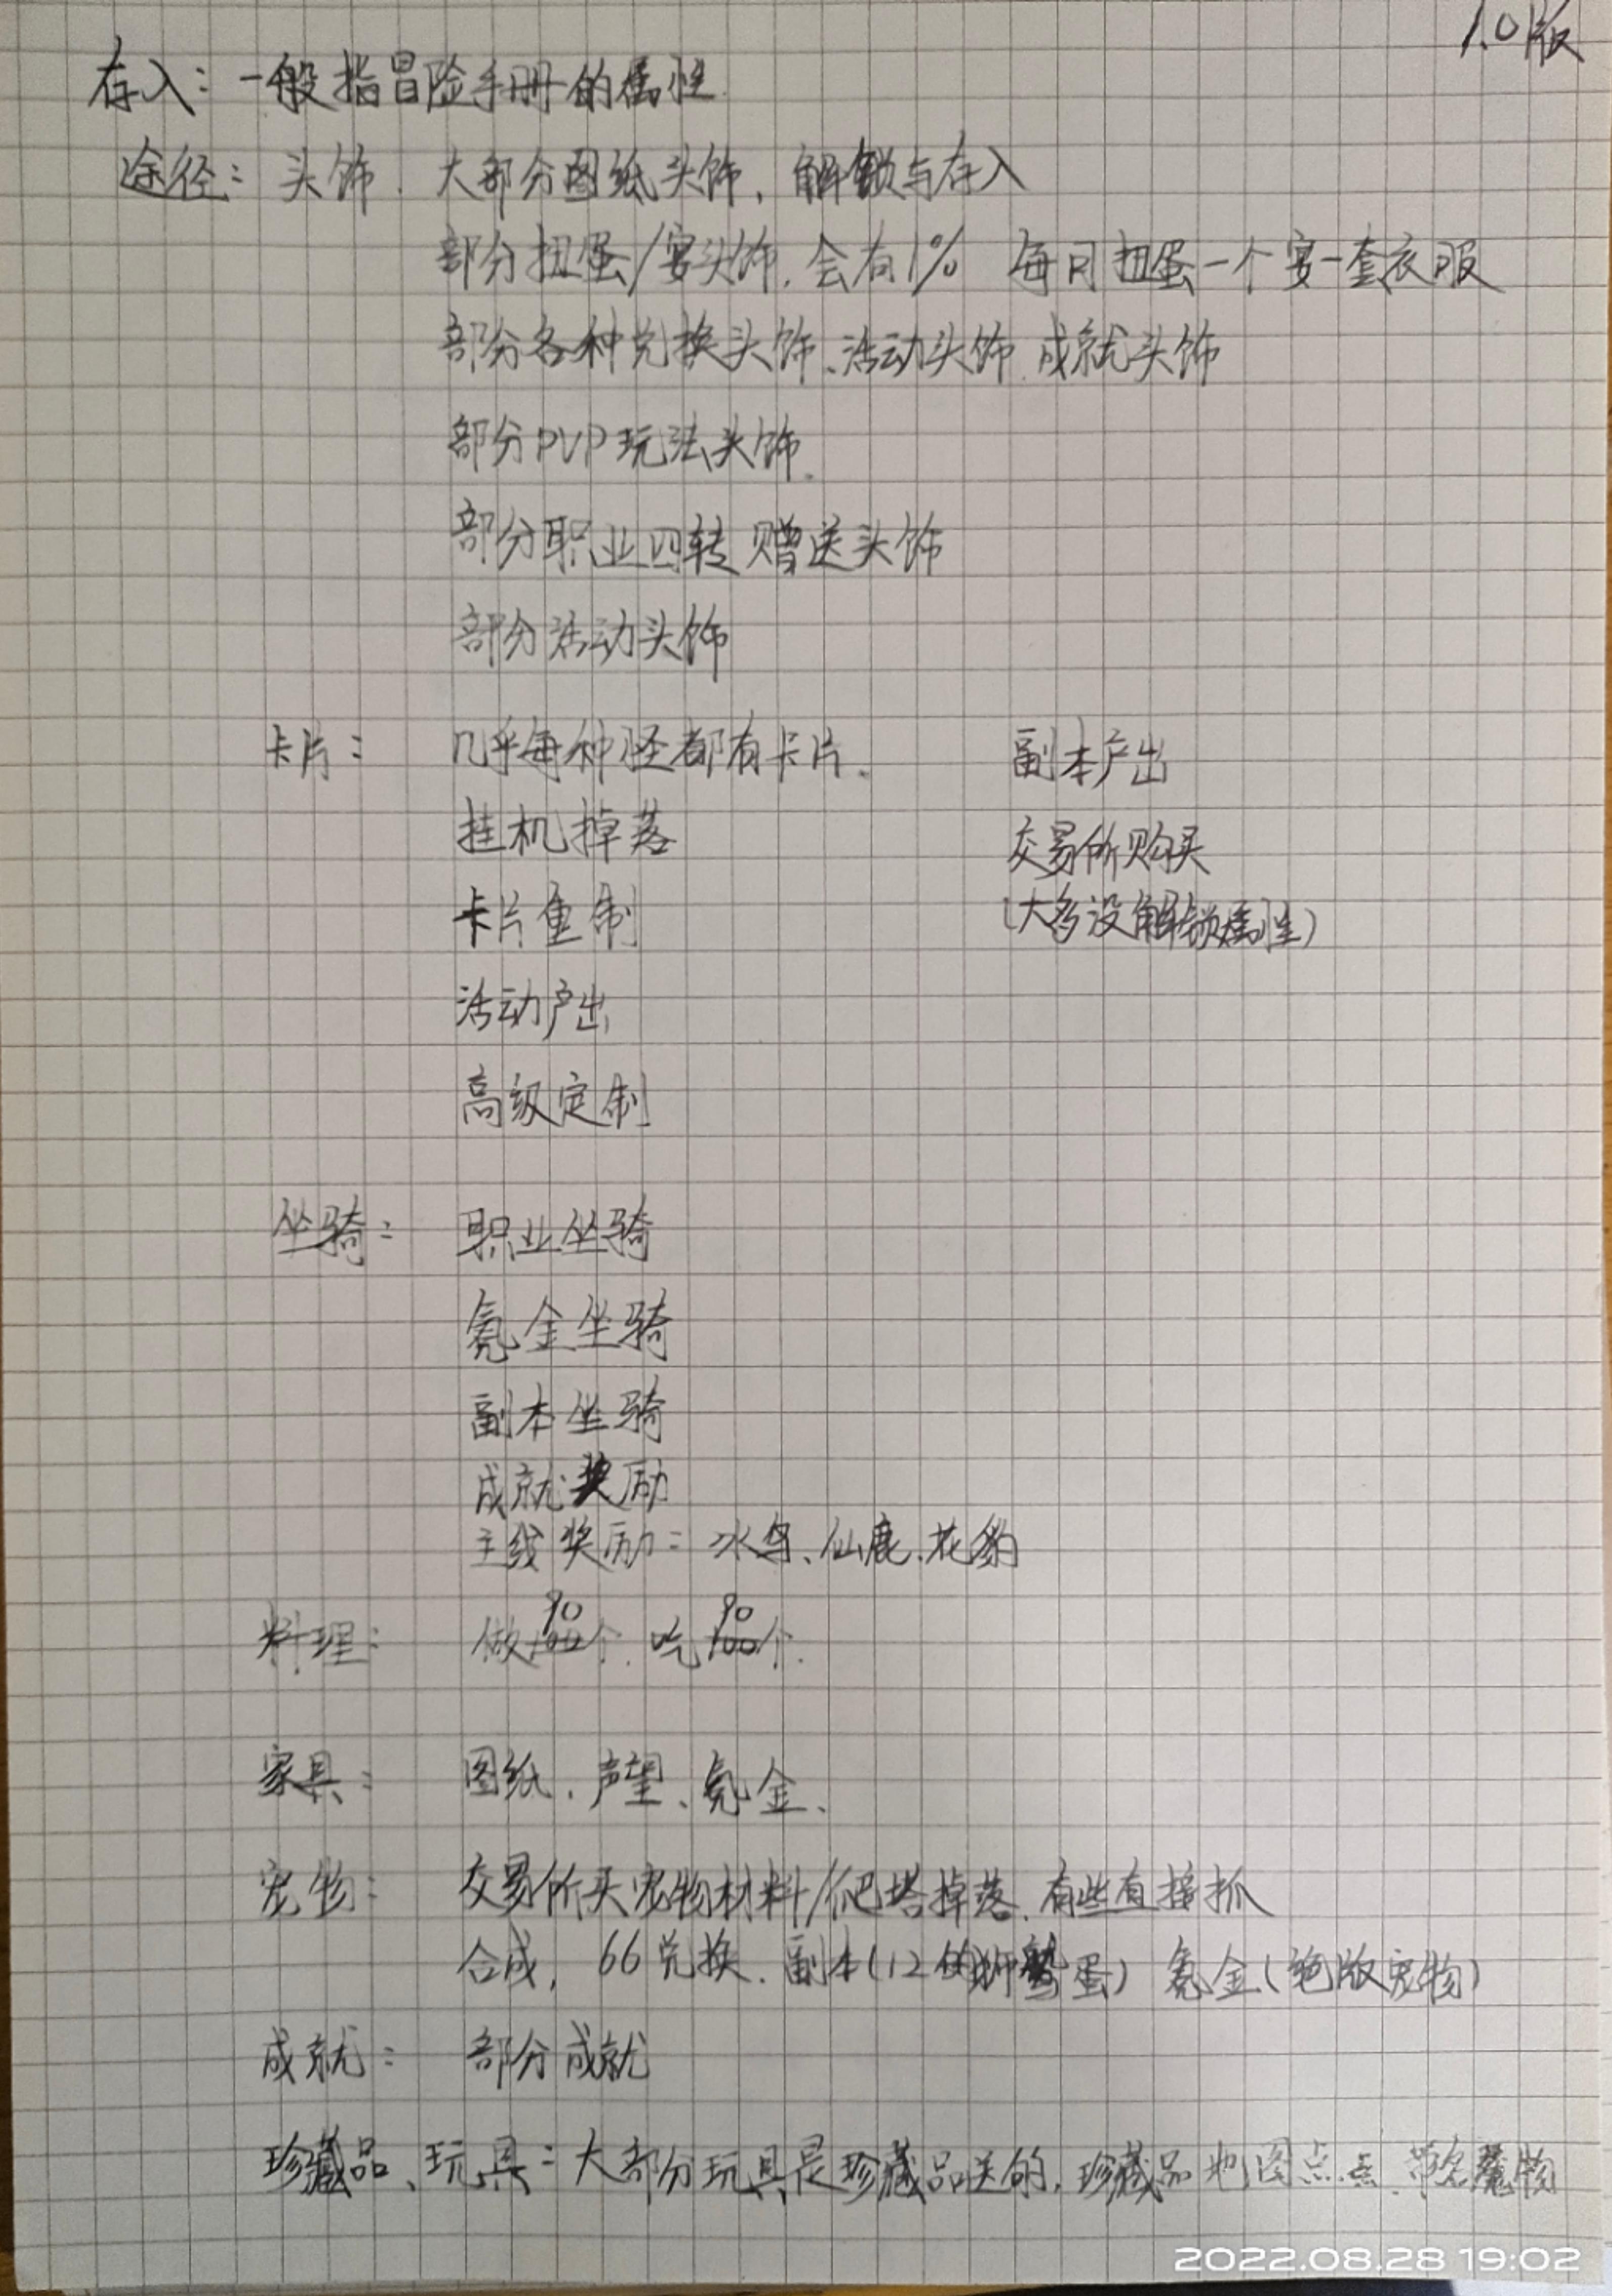 1.0版
存入：一般指冒险手册的属性
途径：头饰．大部分图纸头饰，解锁与存入
部分扭蛋/宴头饰，会有1% 每月扭蛋一个宴一套衣服
部分各种兑换头饰、活动头饰、成就头饰
部分PVP玩法头饰、
部分职业四转赠送头饰
部分活动头饰
卡片： 几乎每种怪都有卡片． 副本产出
挂机掉落 交易所购买
卡片重制 （大多没解锁属性）
活动产出
高级定制
坐骑： 职业坐骑
氪金坐骑
副本坐骑
成就奖励
主线奖励：冰鸟、仙鹿、花豹
料理： 做90个．吃90个．
家具： 图纸、声望、氪金、
宠物： 交易所买宠物材料/爬塔掉落、有些直接抓
合成，66兑换．副本（12的狮鹫蛋）氪金（绝版宠物）
成就： 部分成就
珍藏品、玩具：大部分玩具是珍藏品送的，珍藏品地图点 魔物
2022.08.28 19:02